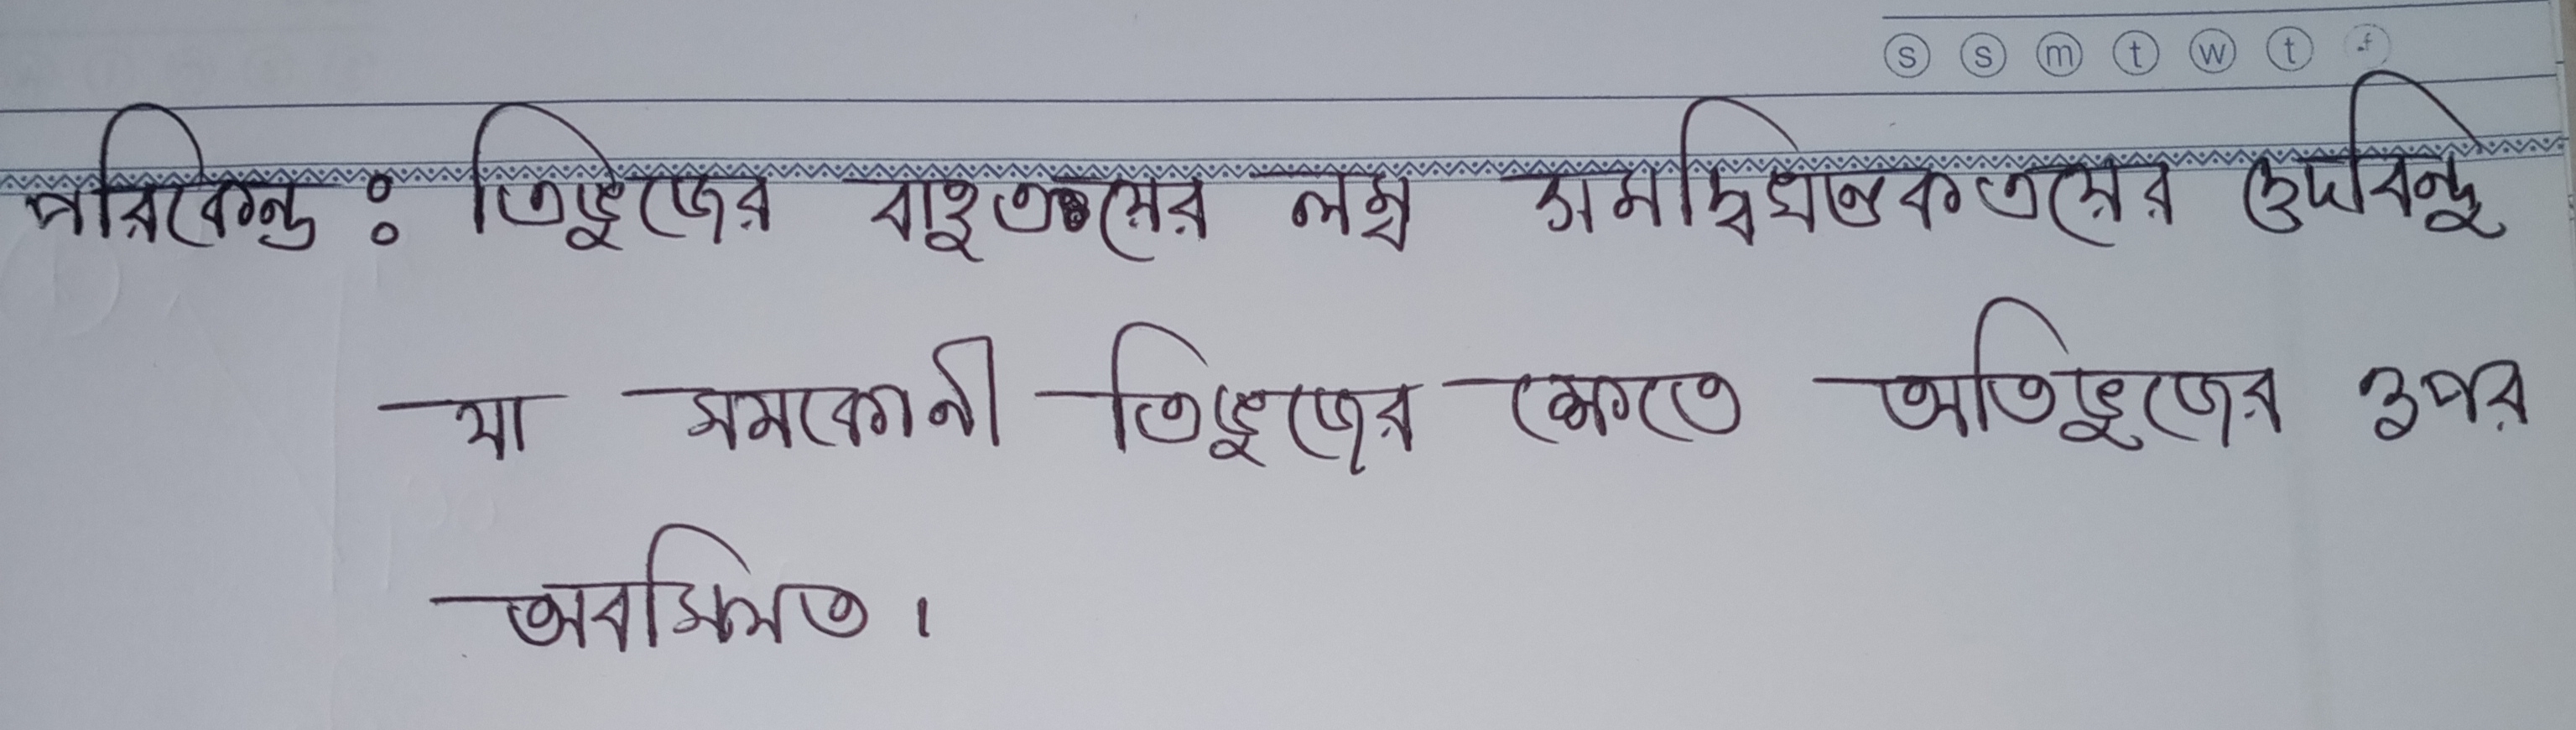 s s m t w t f
পরিকেন্দ্র : ত্রিভুজের বাহুত্রয়ের লম্ব সমদ্বিখণ্ডকত্রয়ের ছেদবিন্দু
যা সমকোনী ত্রিভুজের ক্ষেত্রে অতিভুজের উপর
অবস্থিত।